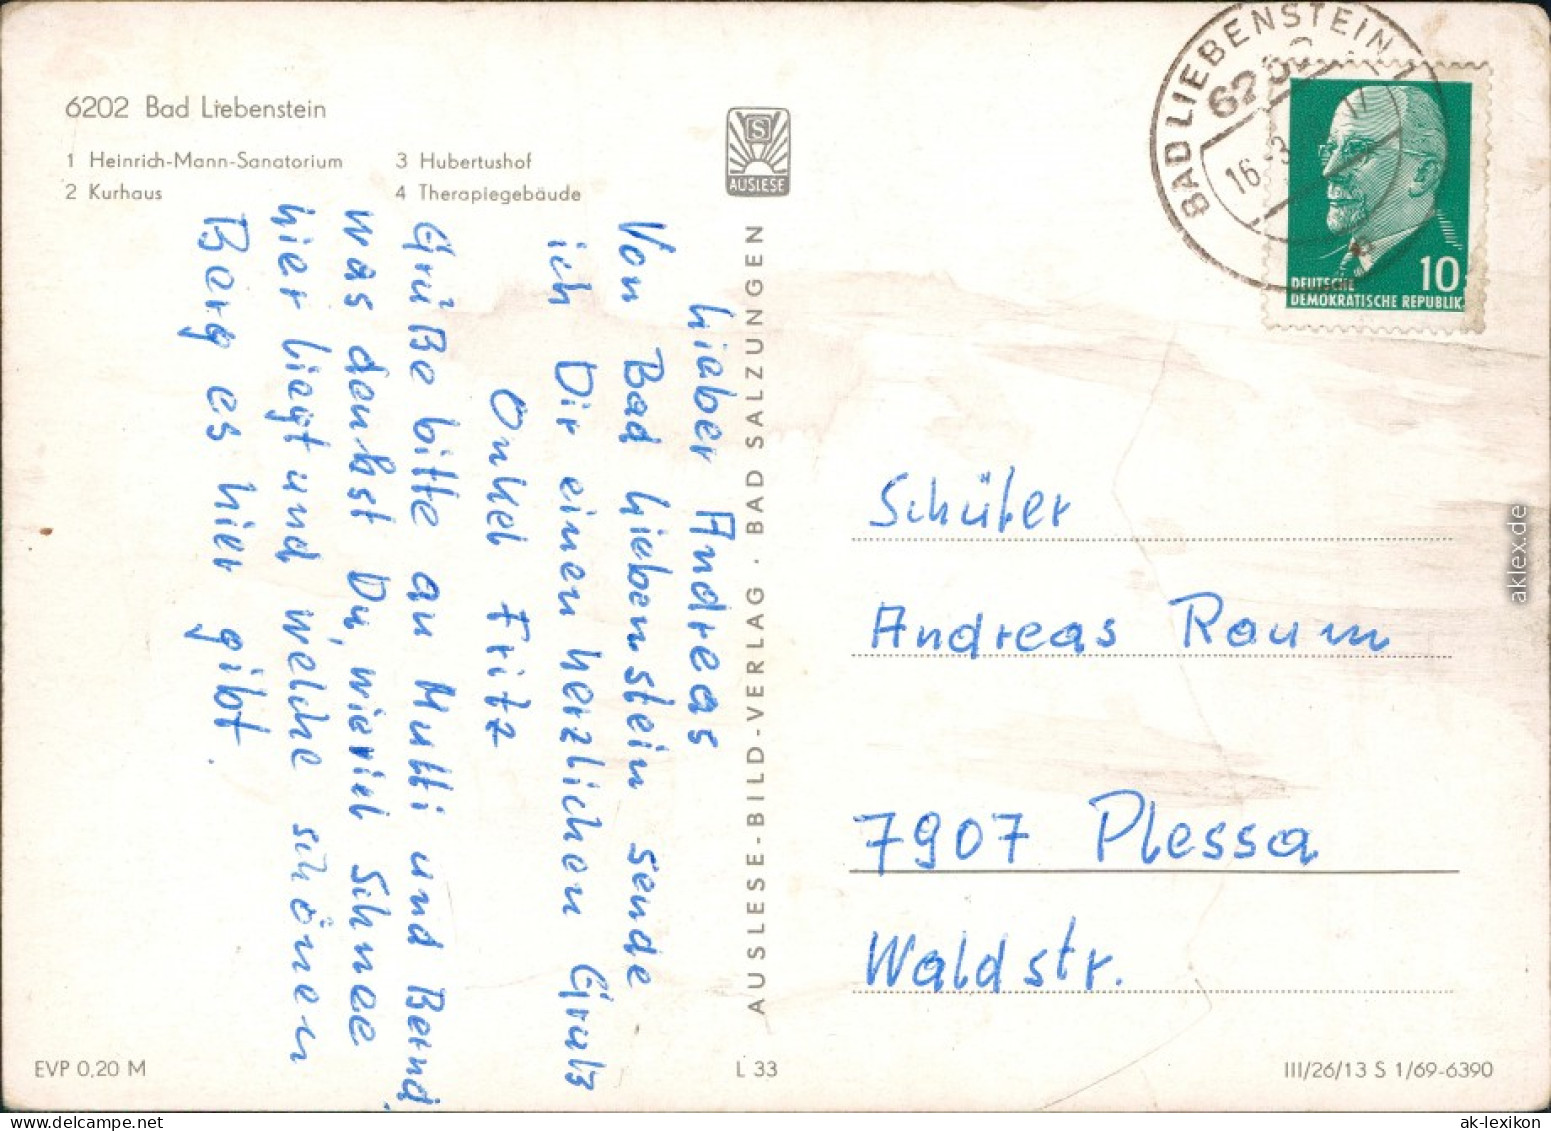 6202 Bad Liebenstein
1 Heinrich-Mann-Sanatorium
2 Kurhaus
3 Hubertushof
4 Therapiegebäude
S
AUSLESE
BAD LIEBENSTEIN 1
16.3
10
DEUTSCHE
DEMOKRATISCHE REPUBLIK
Lieber Andreas
Von Bad Liebenstein sende
ich Dir einen herzlichen Gruß
Onkel Fritz
Grüße bitte an Mutti und Bernd,
was denkst Du, wieviel Schnee
hier liegt und welche schönen
Berg es hier gibt.
AUSLESE-BILD-VERLAG · BAD SALZUNGEN
Schüler
Andreas Raum
7907 Plessa
Waldstr.
EVP 0,20 M
L 33
III/26/13 S 1/69-6390
aklex.de
ak-lexikon